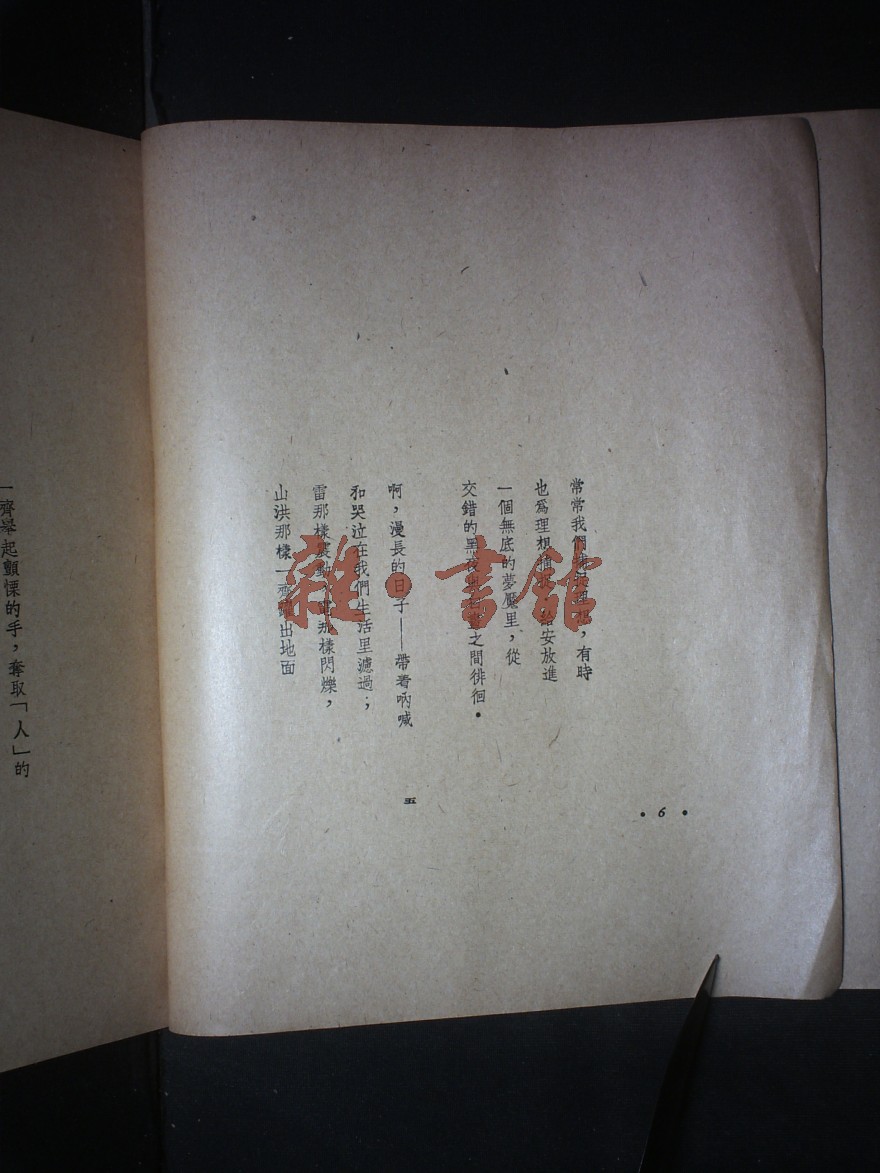 常常我們捕捉理想，有時
也爲理想捕捉，給安放進
一個無底的夢魘里，從
交錯的黑夜與白晝之間徘徊．
五
啊，漫長的日子——帶着吶喊
和哭泣在我們生活里濾過；
雷那樣震動，電那樣閃爍，
山洪那樣一齊躍出地面
• 6 •
一齊舉起顫慄的手，奪取「人」的
雜·書館